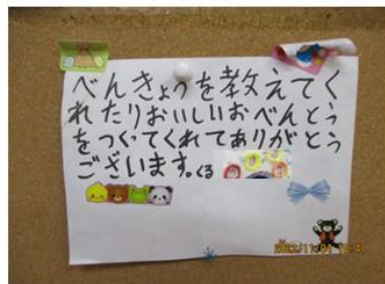 べんきょうを教えてく
れたりおいしいおべんとう
をつくってくれてありがとう
ございます。くる
2022/11/04